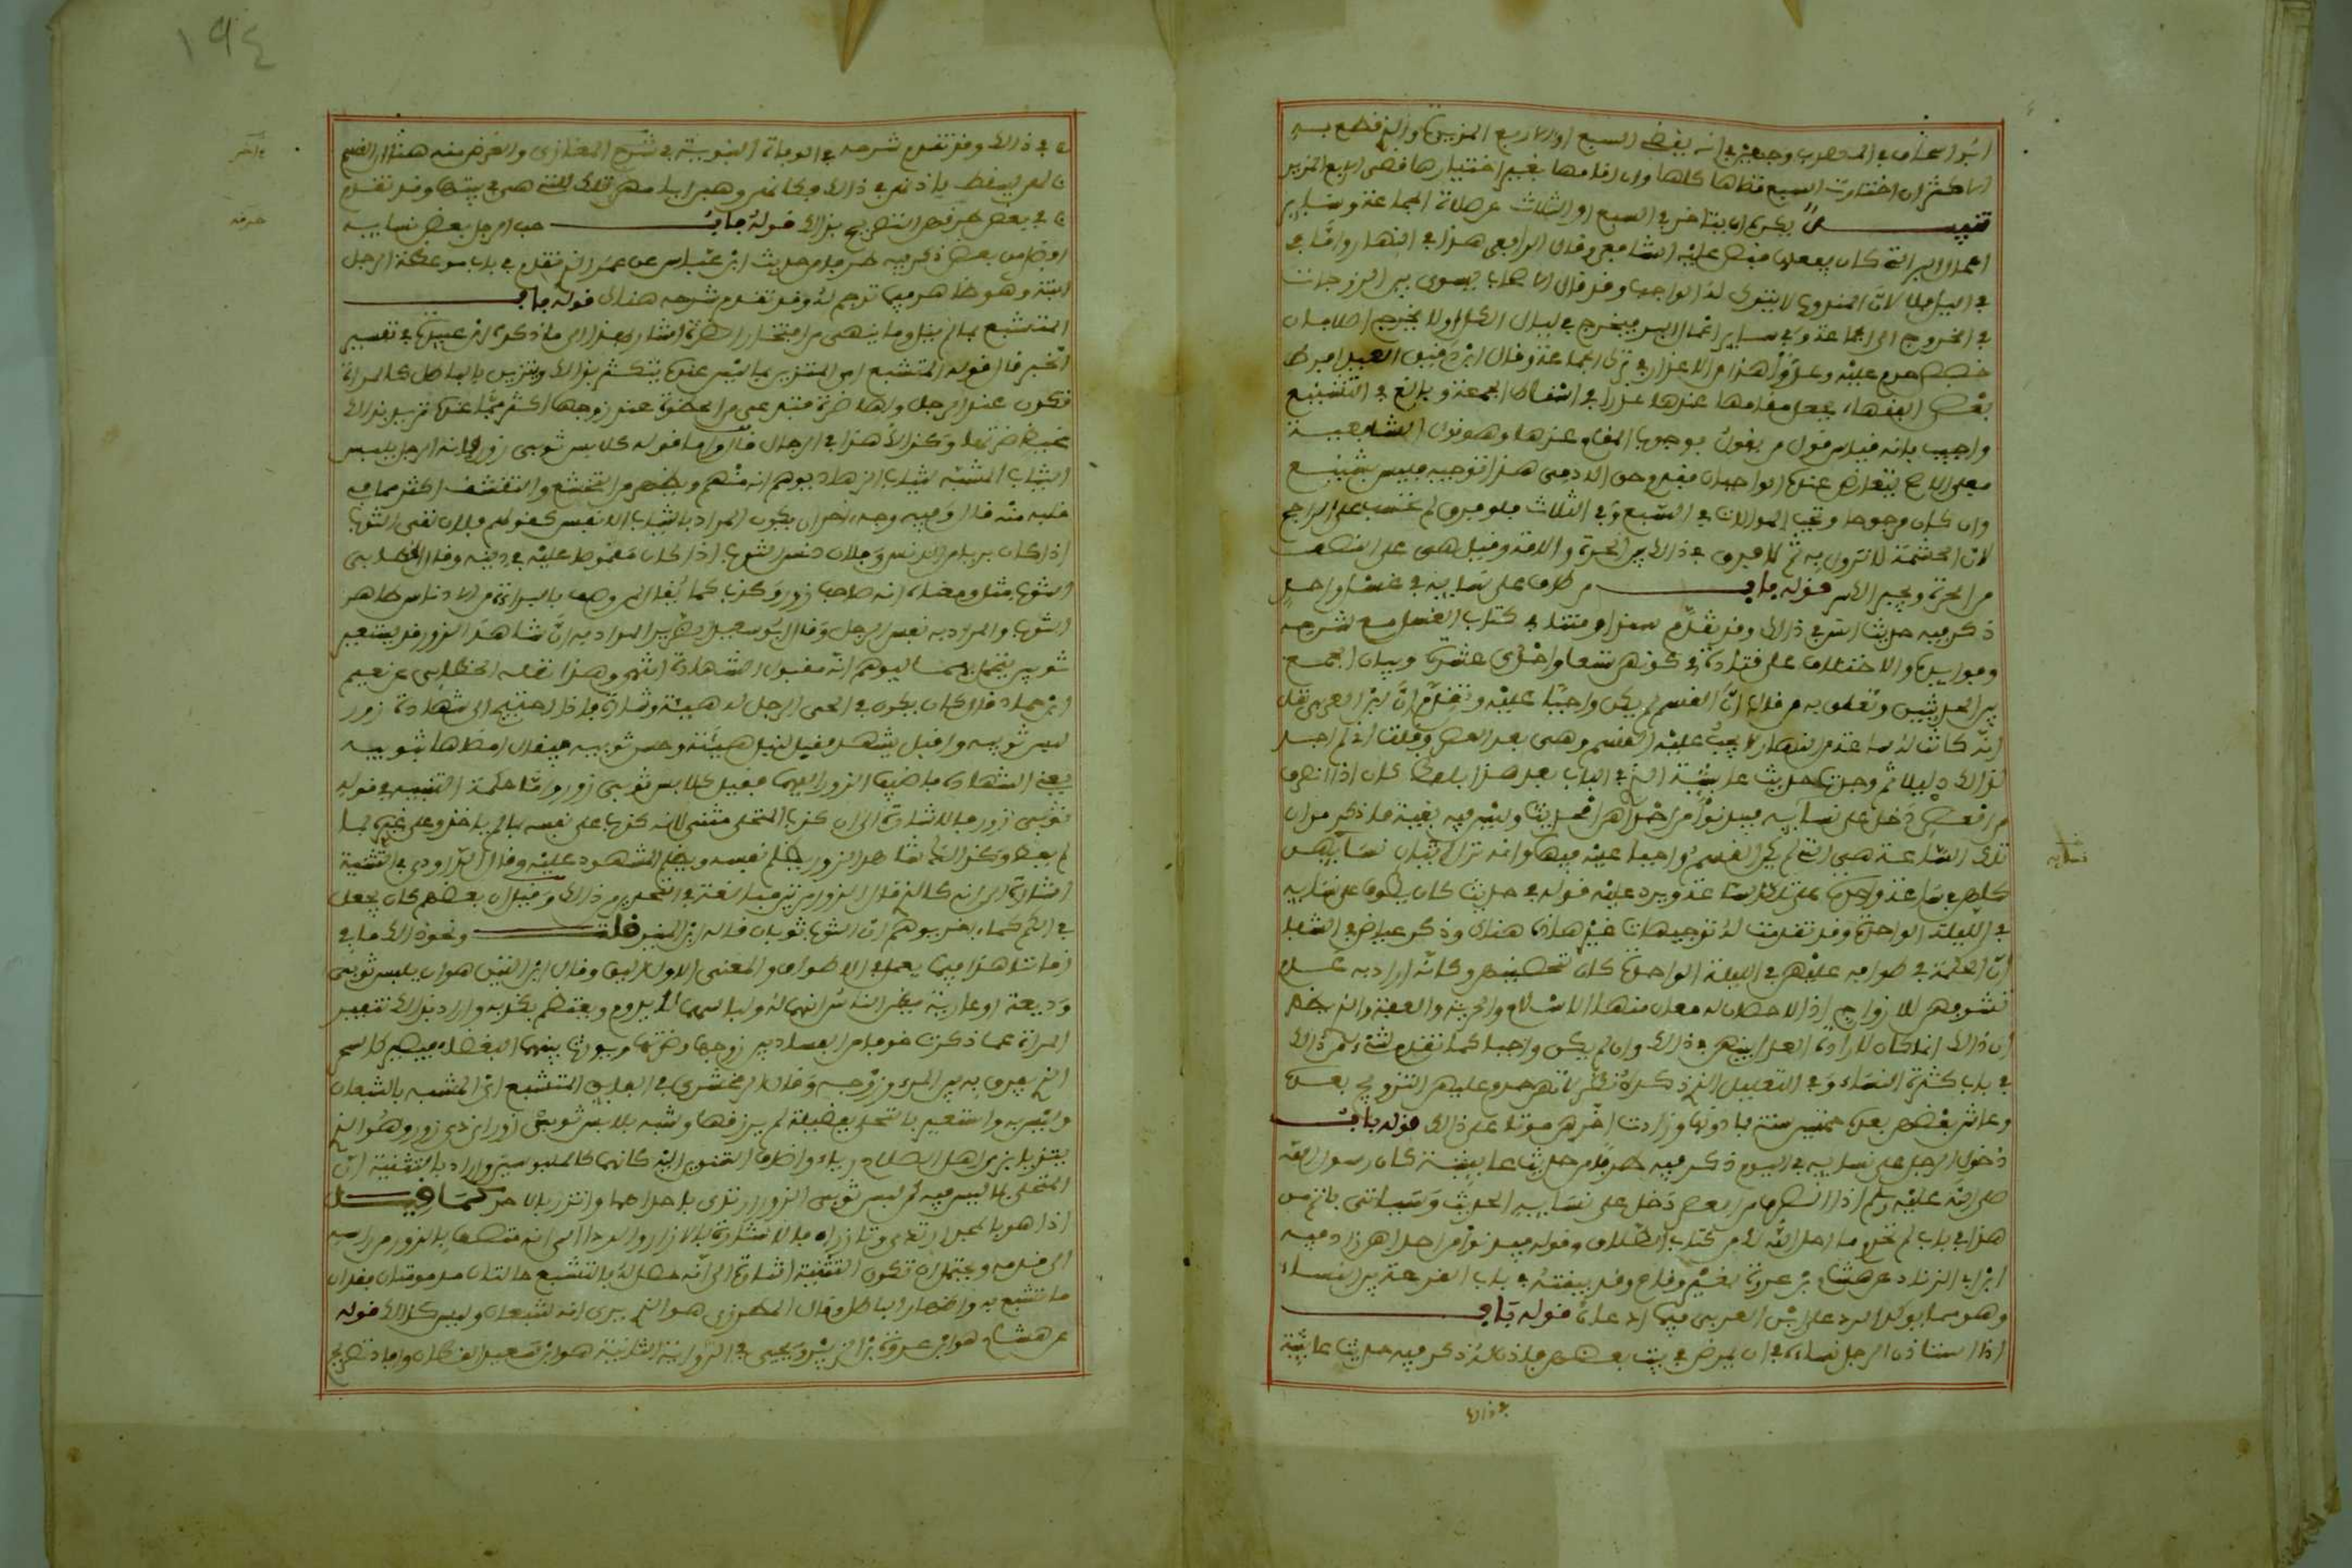 ابو اسحاق في المهذب وجهين في انه يقضي السبع او الاربع المزيدة والذي قطع به
الاكثر ان اختارت السبع قضاها كلها وان اقامها بغير اختيارها قضى الاربع المزيدة
تنبيـــه يكره ان يتاخر في السبع او الثلاث عن صلاة الجماعة وساير
اعمال البر التي كان يفعلها نص عليه الشافعي وقال الرافعي هذا في النهار واما في
في الليل فلا لان المندوب لا يترك له الواجب وقد قال الاصحاب يسوى بين الزوجات
في الخروج الى الجماعة وفي ساير اعمال البر فيخرج في ليالي الكل او لا يخرج اصلا فان
خصص حرم عليه وعدوا هذا من الاعذار في ترك الجماعة وقال ابن دقيق العيد افرط
بعض الفقهاء فجعل مقامه عندها عذرا في اسقاط الجمعة وبالغ في التشنيع
واجيب بانه قياس قول من يقول بوجوب المقام عندها وهو قول الشافعية
فعلى الاصح يتعارض عنده الواجبان فقدم حق الادمي هذا توجيهه فليس بشنيع
وان كان مرجوحا وتجب الموالاة في السبع وفي الثلاث فلو فرق لم تحسب على الراجح
لان الحشمة لا تزول به ثم لا فرق في ذلك بين الحرة والامة وقيل هي على النصف
من الحرة ويجبر الكسر قوله بابـــ من طاف على نسايه في غسل واحد
ذكر فيه حديث انس في ذلك وقد تقدم سندا ومتنا في كتاب الغسل مع شرحه
وفوايده والاختلاف على قتادة في كونهن تسعا او احدى عشرة وبيان الجمع
بين الحديثين وتعلق به من قال ان القسم لم يكن واجبا عليه وتقدم ان ابن العربي نقل
انه كانت له ساعة من النهار لا يجب عليه فيها القسم وهي بعد العصر وقلت اني لم اجد
لذلك دليلا ثم وجدت حديث عايشة الذي في الباب بعد هذا بلفظ كان اذا انصرف
من العصر دخل على نسايه فيدنو من احداهن الحديث وليس فيه بقية ما ذكر من ان
تلك الساعة هي التي لم يكن القسم واجبا عليه فيها وانه ترك اتيان نسايه
كلهن في ساعة واحدة على تلك الساعة ويرد عليه قوله في حديث كان يطوف على نسايه
في الليلة الواحدة وقد تقدمت له توجيهات غير هذه هناك وذكر عياض في الشفا
ان الحكمة في طوافه عليهن في الليلة الواحدة كان لتحصينهن وكانه اراد به عدم
تشوفهن للازواج اذ الاحصان له معان منها الاسلام والحرية والعفة والذي يظهر
ان ذلك انما كان لارادة العدل بينهن في ذلك وان لم يكن واجبا كما تقدم شيء من ذلك
في باب كثرة النساء وفي التعليل الذي ذكره نظر لانهن حرم عليهن التزويج بعده
وعاش بعضهن بعده خمسين سنة فما دونها وزادت اخرهن موتا على ذلك قوله بابـــ
دخول الرجل على نسايه في اليوم ذكر فيه طرفا من حديث عايشة كان رسول الله
صلى الله عليه وسلم اذا انصرف من العصر دخل على نسايه الحديث وسياتي باتم من
هذا في باب لم تحرم ما احل الله لك من كتاب الطلاق وقوله فيدنو من احداهن زاد فيه
ابن ابي الزناد عن هشام بن عروة بغير وقاع وقد بينته في باب القرعة بين النساء
وهو مما يوكد الرد على ابن العربي فيما ادعاه قوله بابـــ
اذا استاذن الرجل نساءه في ان يمرض في بيت بعضهن فاذن له ذكر فيه حديث عايشة
في ذلك
١٩٤
في ذلك وقد تقدم شرحه في الوفاة النبوية في شرح المغازي والغرض منه هنا ان القسم
لهن يسقط باذنهن في ذلك فكانهن وهبن ايامهن تلك للتي هو في بيتها وقد تقدم
في بعض طرقه التصريح بذلك قوله بابـــ حب الرجل بعض نسايه
افضل من بعض ذكر فيه طرفا من حديث ابن عباس عن عمر الذي تقدم في باب موعظة الرجل
ابنته وهو ظاهر فيما ترجم له وقد تقدم شرحه هناك قوله بابـــ
المتشبع بما لم ينل وما ينهى من افتخار الضرة اشار بهذا الى ما ذكره ابو عبيد في تفسير
الخبر قال قوله المتشبع اي المتزين بما ليس عنده يتكثر بذلك ويتزين بالباطل كالمراة
تكون عند الرجل ولها ضرة فتدعي من الحظوة عند زوجها اكثر مما عنده تريد بذلك
غيظ ضرتها وكذلك هذا في الرجال قال واما قوله كلابس ثوبي زور فانه الرجل يلبس
الثياب المشبهة لثياب الزهاد يوهم انه منهم ويظهر من التخشع والتقشف اكثر مما في
قلبه منه قال وفيه وجه اخر ان يكون المراد بالثياب الانفس كقولهم فلان نقي الثوب
اذا كان بريا من الدنس وفلان دنس الثوب اذا كان مغموصا عليه في دينه وقال الخطابي
الثوب مثل ومعناه انه صاحب زور وكذب كما يقال لمن وصف بالبراءة من الادناس طاهر
الثوب والمراد به نفس الرجل وقال ابو سعيد الضرير المراد به ان شاهد الزور قد يستعير
ثوبين يتجمل بهما ليوهم انه مقبول الشهادة انتهى وهذا نقله الخطابي عن نعيم
ابن حماد قال كان يكون في الحي الرجل له هيئة وشارة فاذا احتيج الى شهادة زور
لبس ثوبيه واقبل يشهد فقبل لنبل هيئته وحسن ثوبيه فيقال امضاها بثوبيه
يعني الشهادة فاضيف الزور اليهما فقيل كلابس ثوبي زور واما حكمة التثنية في قوله
ثوبي زور فللاشارة الى ان كذب المتحلي مثنى لانه كذب على نفسه بما لم ياخذ وعلى غيره بما
لم يعط وكذلك شاهد الزور يظلم نفسه ويظلم المشهود عليه وقال الداودي في التثنية
اشارة الى انه كالذي قال الزور مرتين مبالغة في التحذير من ذلك وقيل ان بعضهم كان يجعل
في الكم كما اخر يوهم ان الثوب ثوبان قاله ابن المنير قلتـــ ونحو ذلك ما في
زماننا هذا فيما يعمل في الاطواق والمعنى الاول اليق وقال ابن التين هو ان يلبس ثوبي
وديعة او عارية يظن الناس انهما له ولباسهما لا يدوم ويفتضح بكذبه واراد بذلك تنفير
المراة عما ذكرت خوفا من الفساد بين زوجها وضرتها ويورث بينهما البغضاء فيصير كالسحر
الذي يفرق به بين المرء وزوجه وقال الزمخشري في الفايق المتشبع اي المشبه بالشبعان
وليس به واستعير للتحلي بفضيلة لم يرزقها وشبه بلابس ثوبي زور اي ذي زور وهو الذي
يتزيا بزي اهل الصلاح رياء واضاف الثوبين اليه لكانهما كالملبوسين واراد بالتثنية ان
المتحلي بما ليس فيه كمن لبس ثوبي الزور ارتدى باحداهما واتزر بالاخر كما قيـــل
اذا هو بالمجد ارتدى وتازرا فالاشارة بالازار والرداء الى انه متصف بالزور من راسه
الى قدمه ويحتمل ان تكون التثنية اشارة الى انه حصل له بالتشبع حالتان مذمومتان فقدان
ما تشبع به واظهار الباطل وقال المطرزي هو الذي يرى انه شبعان وليس كذلك قوله
عن هشام هو ابن عروة بن الزبير ويحيى في الرواية الثانية هو ابن سعيد القطان وافاد تصريح